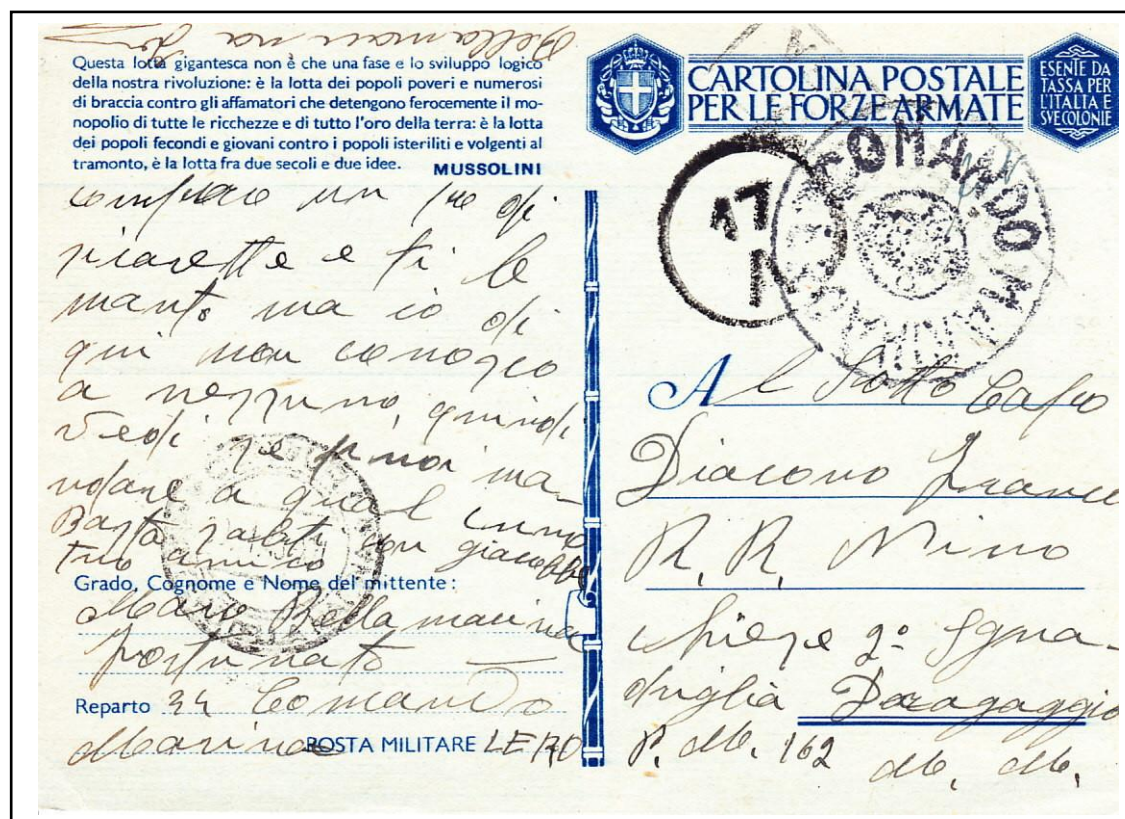 Bellamacina
Questa lotta gigantesca non è che una fase e lo sviluppo logico
della nostra rivoluzione: è la lotta dei popoli poveri e numerosi
di braccia contro gli affamatori che detengono ferocemente il mo-
nopolio di tutte le ricchezze e di tutto l'oro della terra: è la lotta
dei popoli fecondi e giovani contro i popoli isteriliti e volgenti al
tramonto, è la lotta fra due secoli e due idee.
MUSSOLINI
un di
e ti le
manto ma io di
qui non conosco
a nessuno, quindi
vedi se puoi ma-
ndare a qual
Basta saluti
tuo amico
Grado, Cognome e Nome del mittente:
Maro Bellamacina
Fortunato
Reparto 34 Comando
Marina POSTA MILITARE LERO
CARTOLINA POSTALE
PER LE FORZE ARMATE
ESENTE DA
TASSA PER
L'ITALIA E
SVE COLONIE
17
COMANDO
Al Sotto Capo
Diacono
R. R. Nino
2° Squa-
driglia Dragaggio
P. M. 162
M. M.